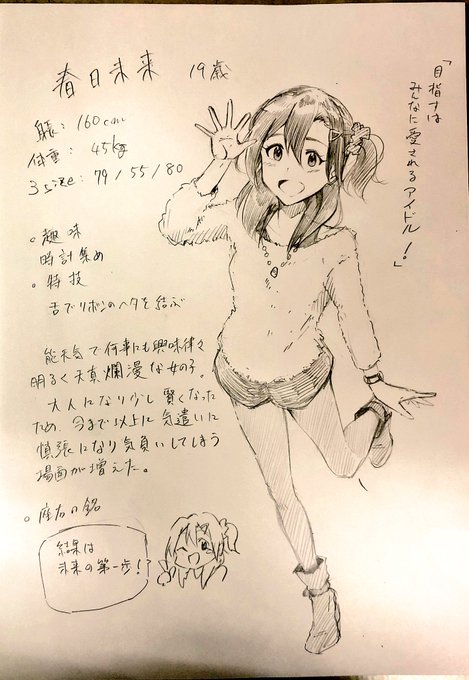 春日未来 19歳
身長: 160cm
体重: 45kg
3size: 79 / 55 / 80
。趣味
時計集め
。特技
舌でリボンのヘタを結ぶ
能天気で何事にも興味津々
明るく天真爛漫な女の子。
大人になり少し賢くなった
ため、今まで以上に気遣いに
慎張になり気負いしてしまう
場面が増えた。
。座右の銘
結果は
未来の第一歩!
「目指すは
みんなに愛されるアイドル!」